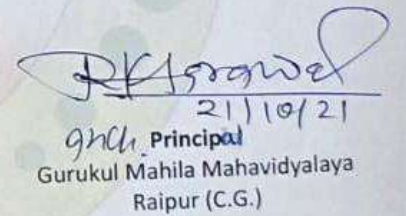 RKAgrawal
21/10/21
Principal
Gurukul Mahila Mahavidyalaya
Raipur (C.G.)